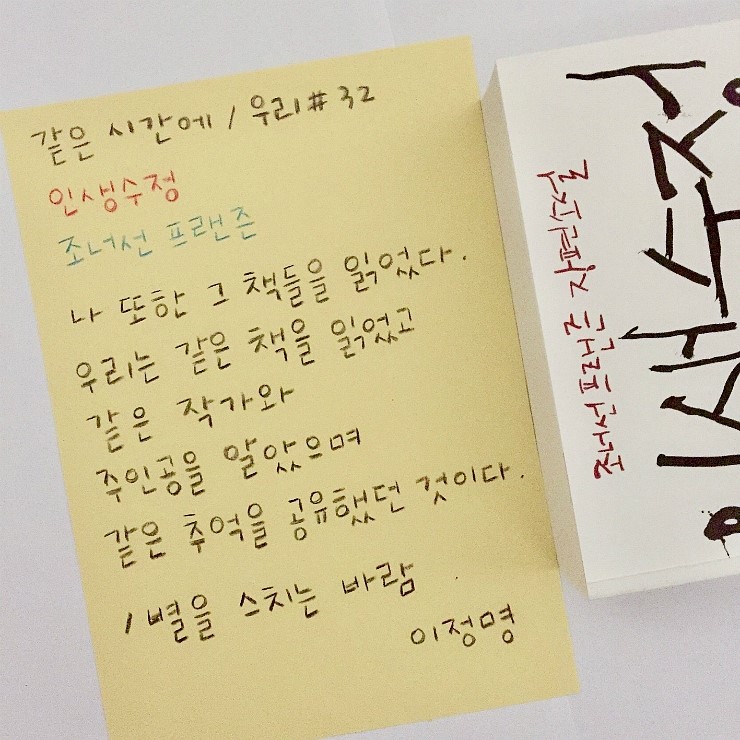 같은 시간에 / 우리 # 32
인생수정
조너선 프랜즌
나 또한 그 책들을 읽었다.
우리는 같은 책을 읽었고
같은 작가와
주인공을 알았으며
같은 추억을 공유했던 것이다.
/ 별을 스치는 바람
이정명
인생수정
조너선프랜즌